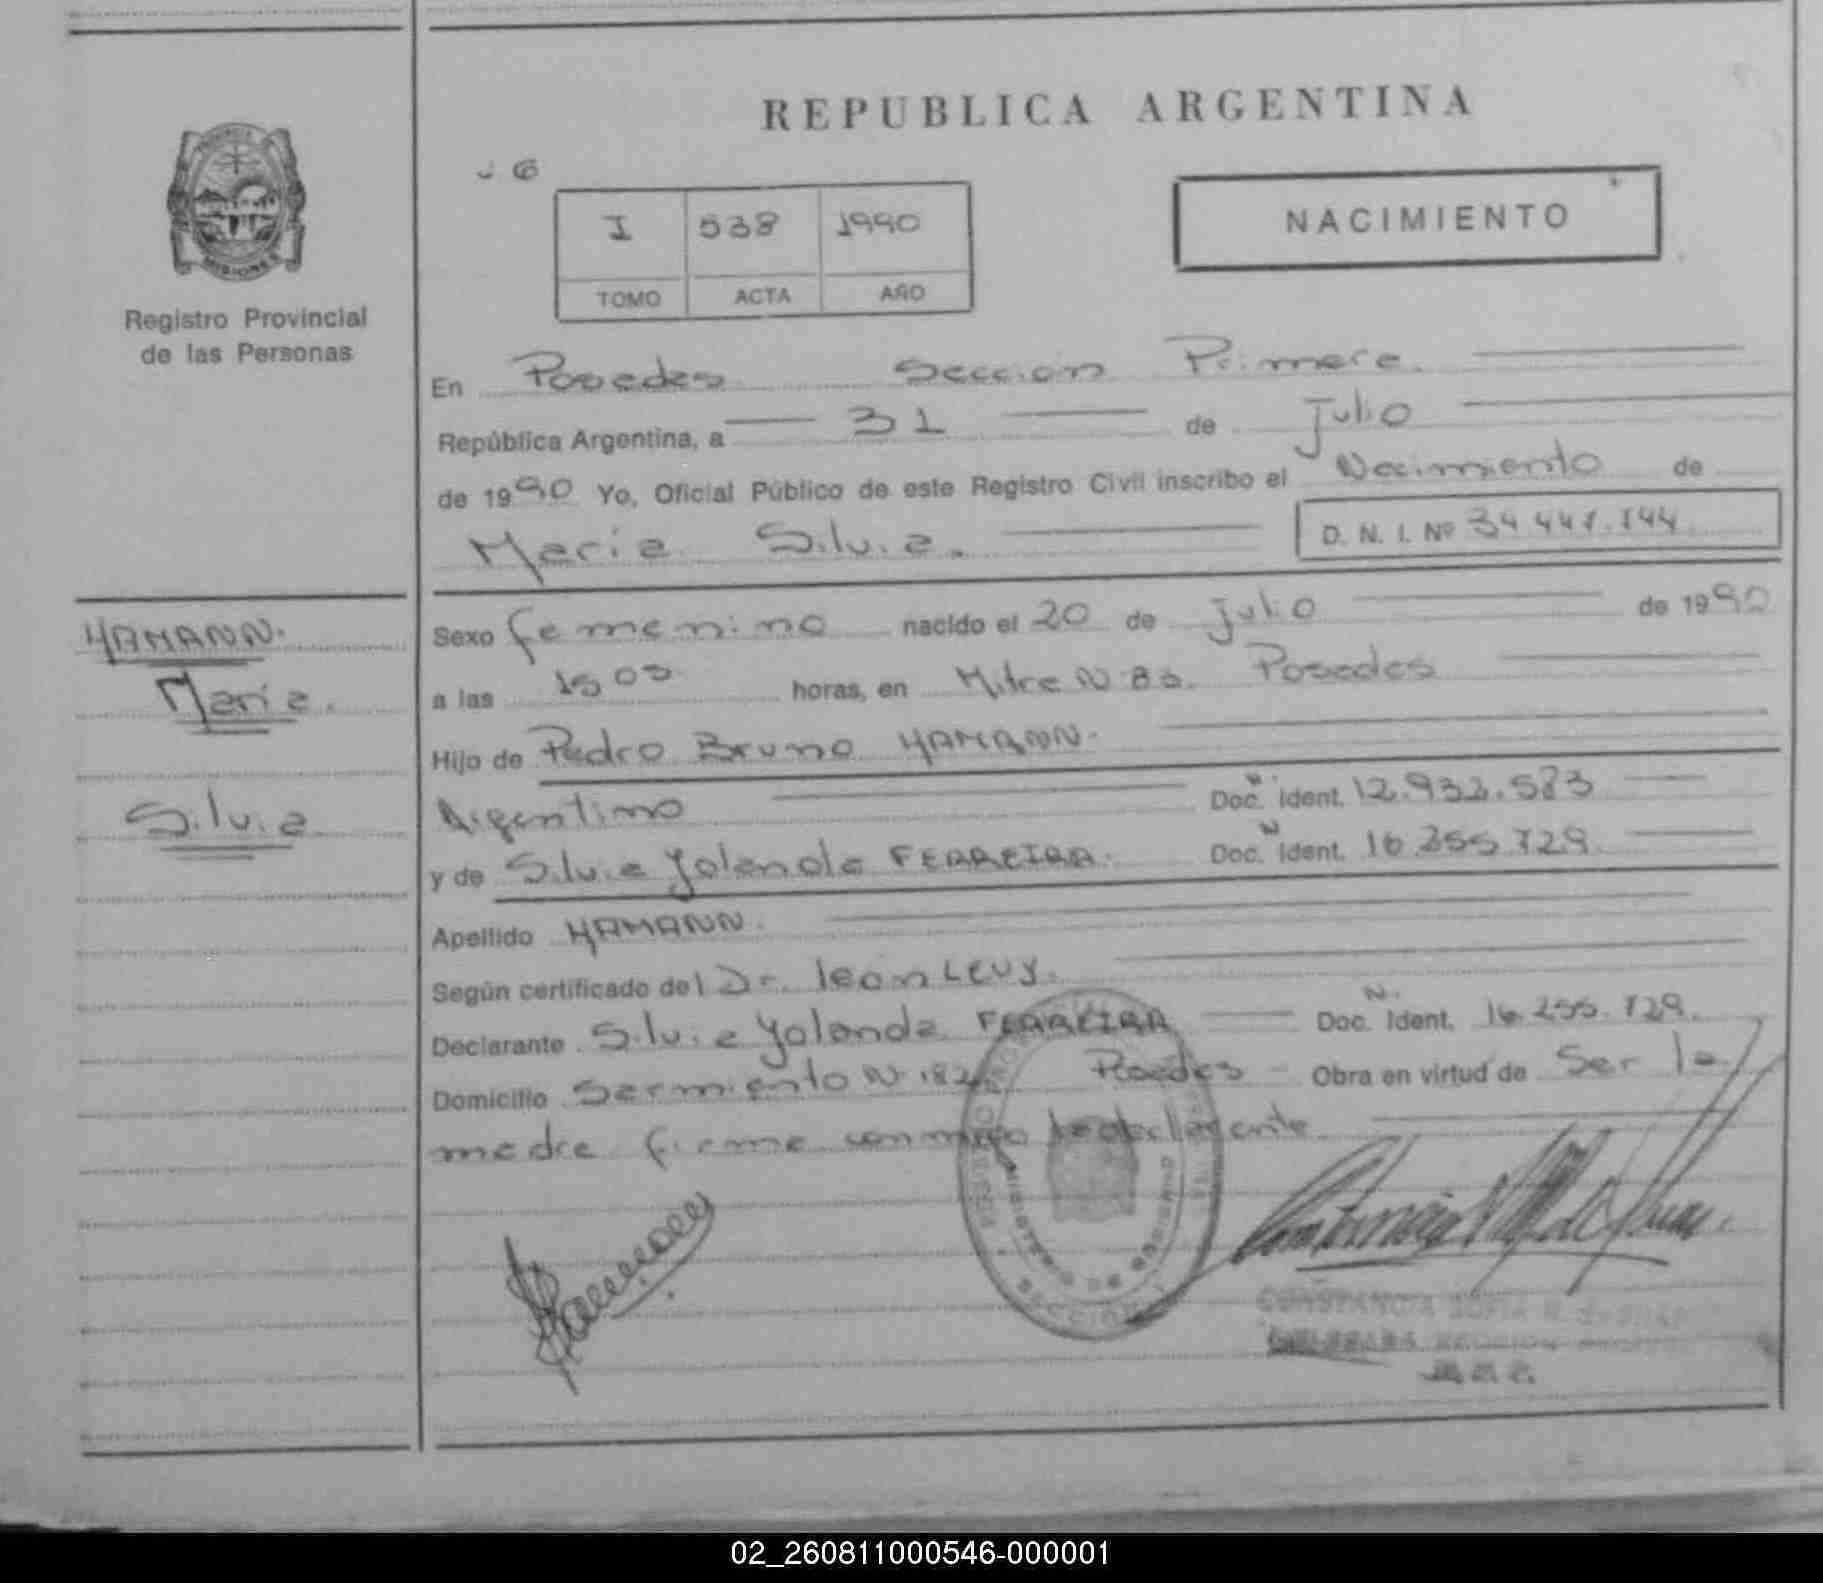 REPUBLICA ARGENTINA
I 538 1990
TOMO ACTA AÑO
NACIMIENTO
MISIONES
Registro Provincial
de las Personas
En Posadas Sección Primera.
República Argentina, a 31 de Julio
de 1990 Yo, Oficial Público de este Registro Civil inscribo el Nacimiento de
María Silvia.
D. N. I. Nº 34.447.744
HAMANN.
María.
Silvia
Sexo femenino nacido el 20 de Julio de 1990
a las horas, en Mitre N Posadas
Hijo de Pedro Bruno HAMANN.
Argentino Doc. Ident. 12.932.583
y de Silvia Yolanda FERREIRA. Doc. Ident. 16.255.729
Apellido HAMANN.
Según certificado del Dr. León Levy.
Declarante Silvia Yolanda FERREIRA Doc. Ident. 16.255.729.
Domicilio Sarmiento N. Posadas Obra en virtud de Ser la
madre firma conmigo
SECCION
CONSTANCIA SOFIA
02_260811000546-000001